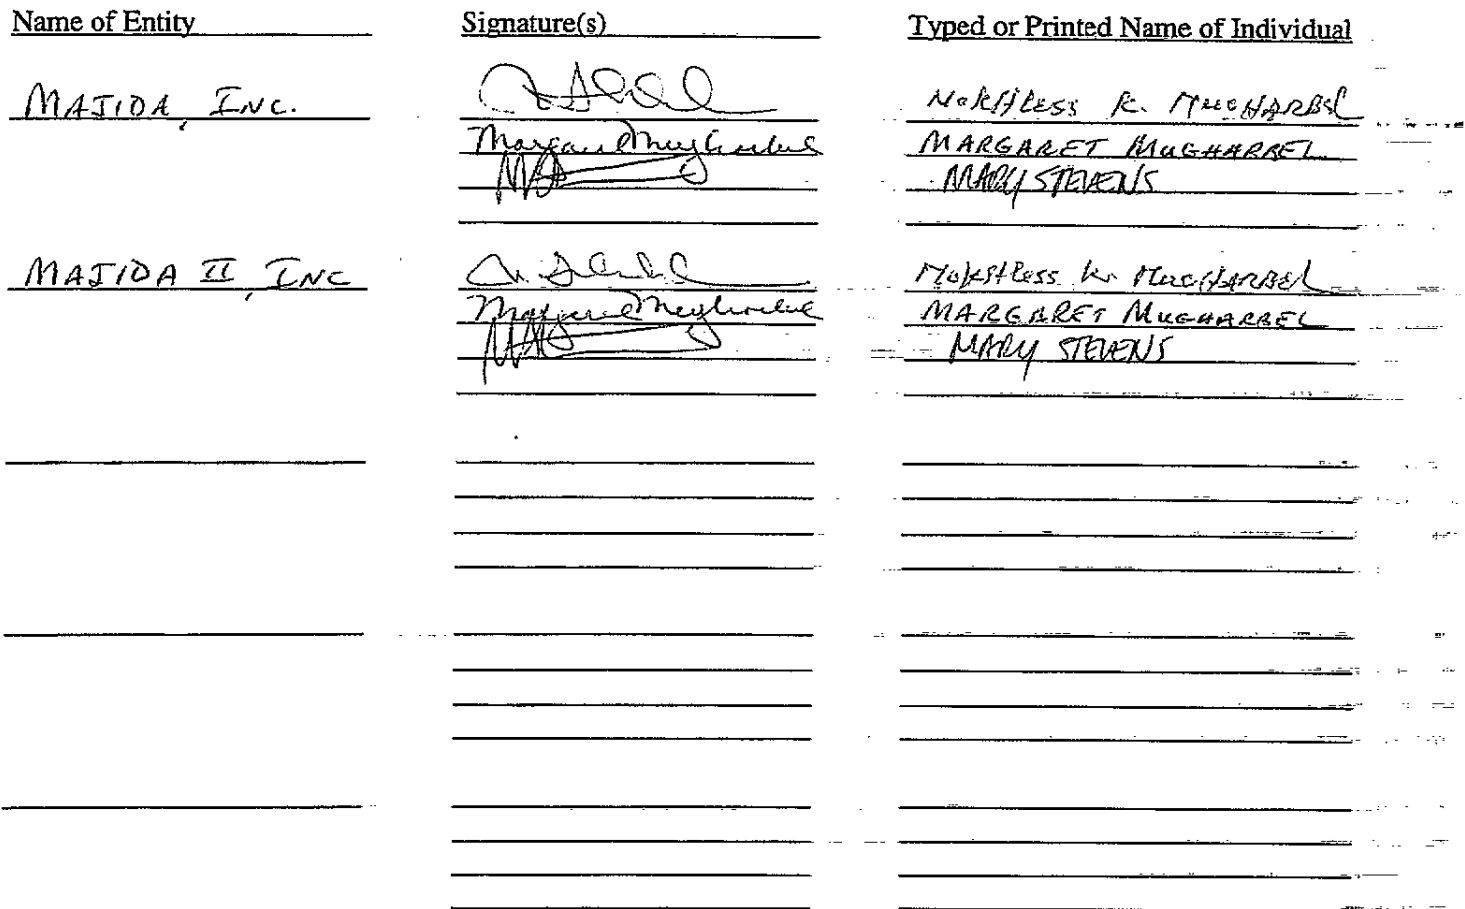 Name of Entity Signature(s) Typed or Printed Name of Individual
MAJIDA, INC. K. MUGHARBEL
Margaret Mugharbel MARGARET MUGHARBEL
MARY STEVENS
MAJIDA II, INC K. MUGHARBEL
Margaret Mugharbel MARGARET MUGHARBEL
MARY STEVENS